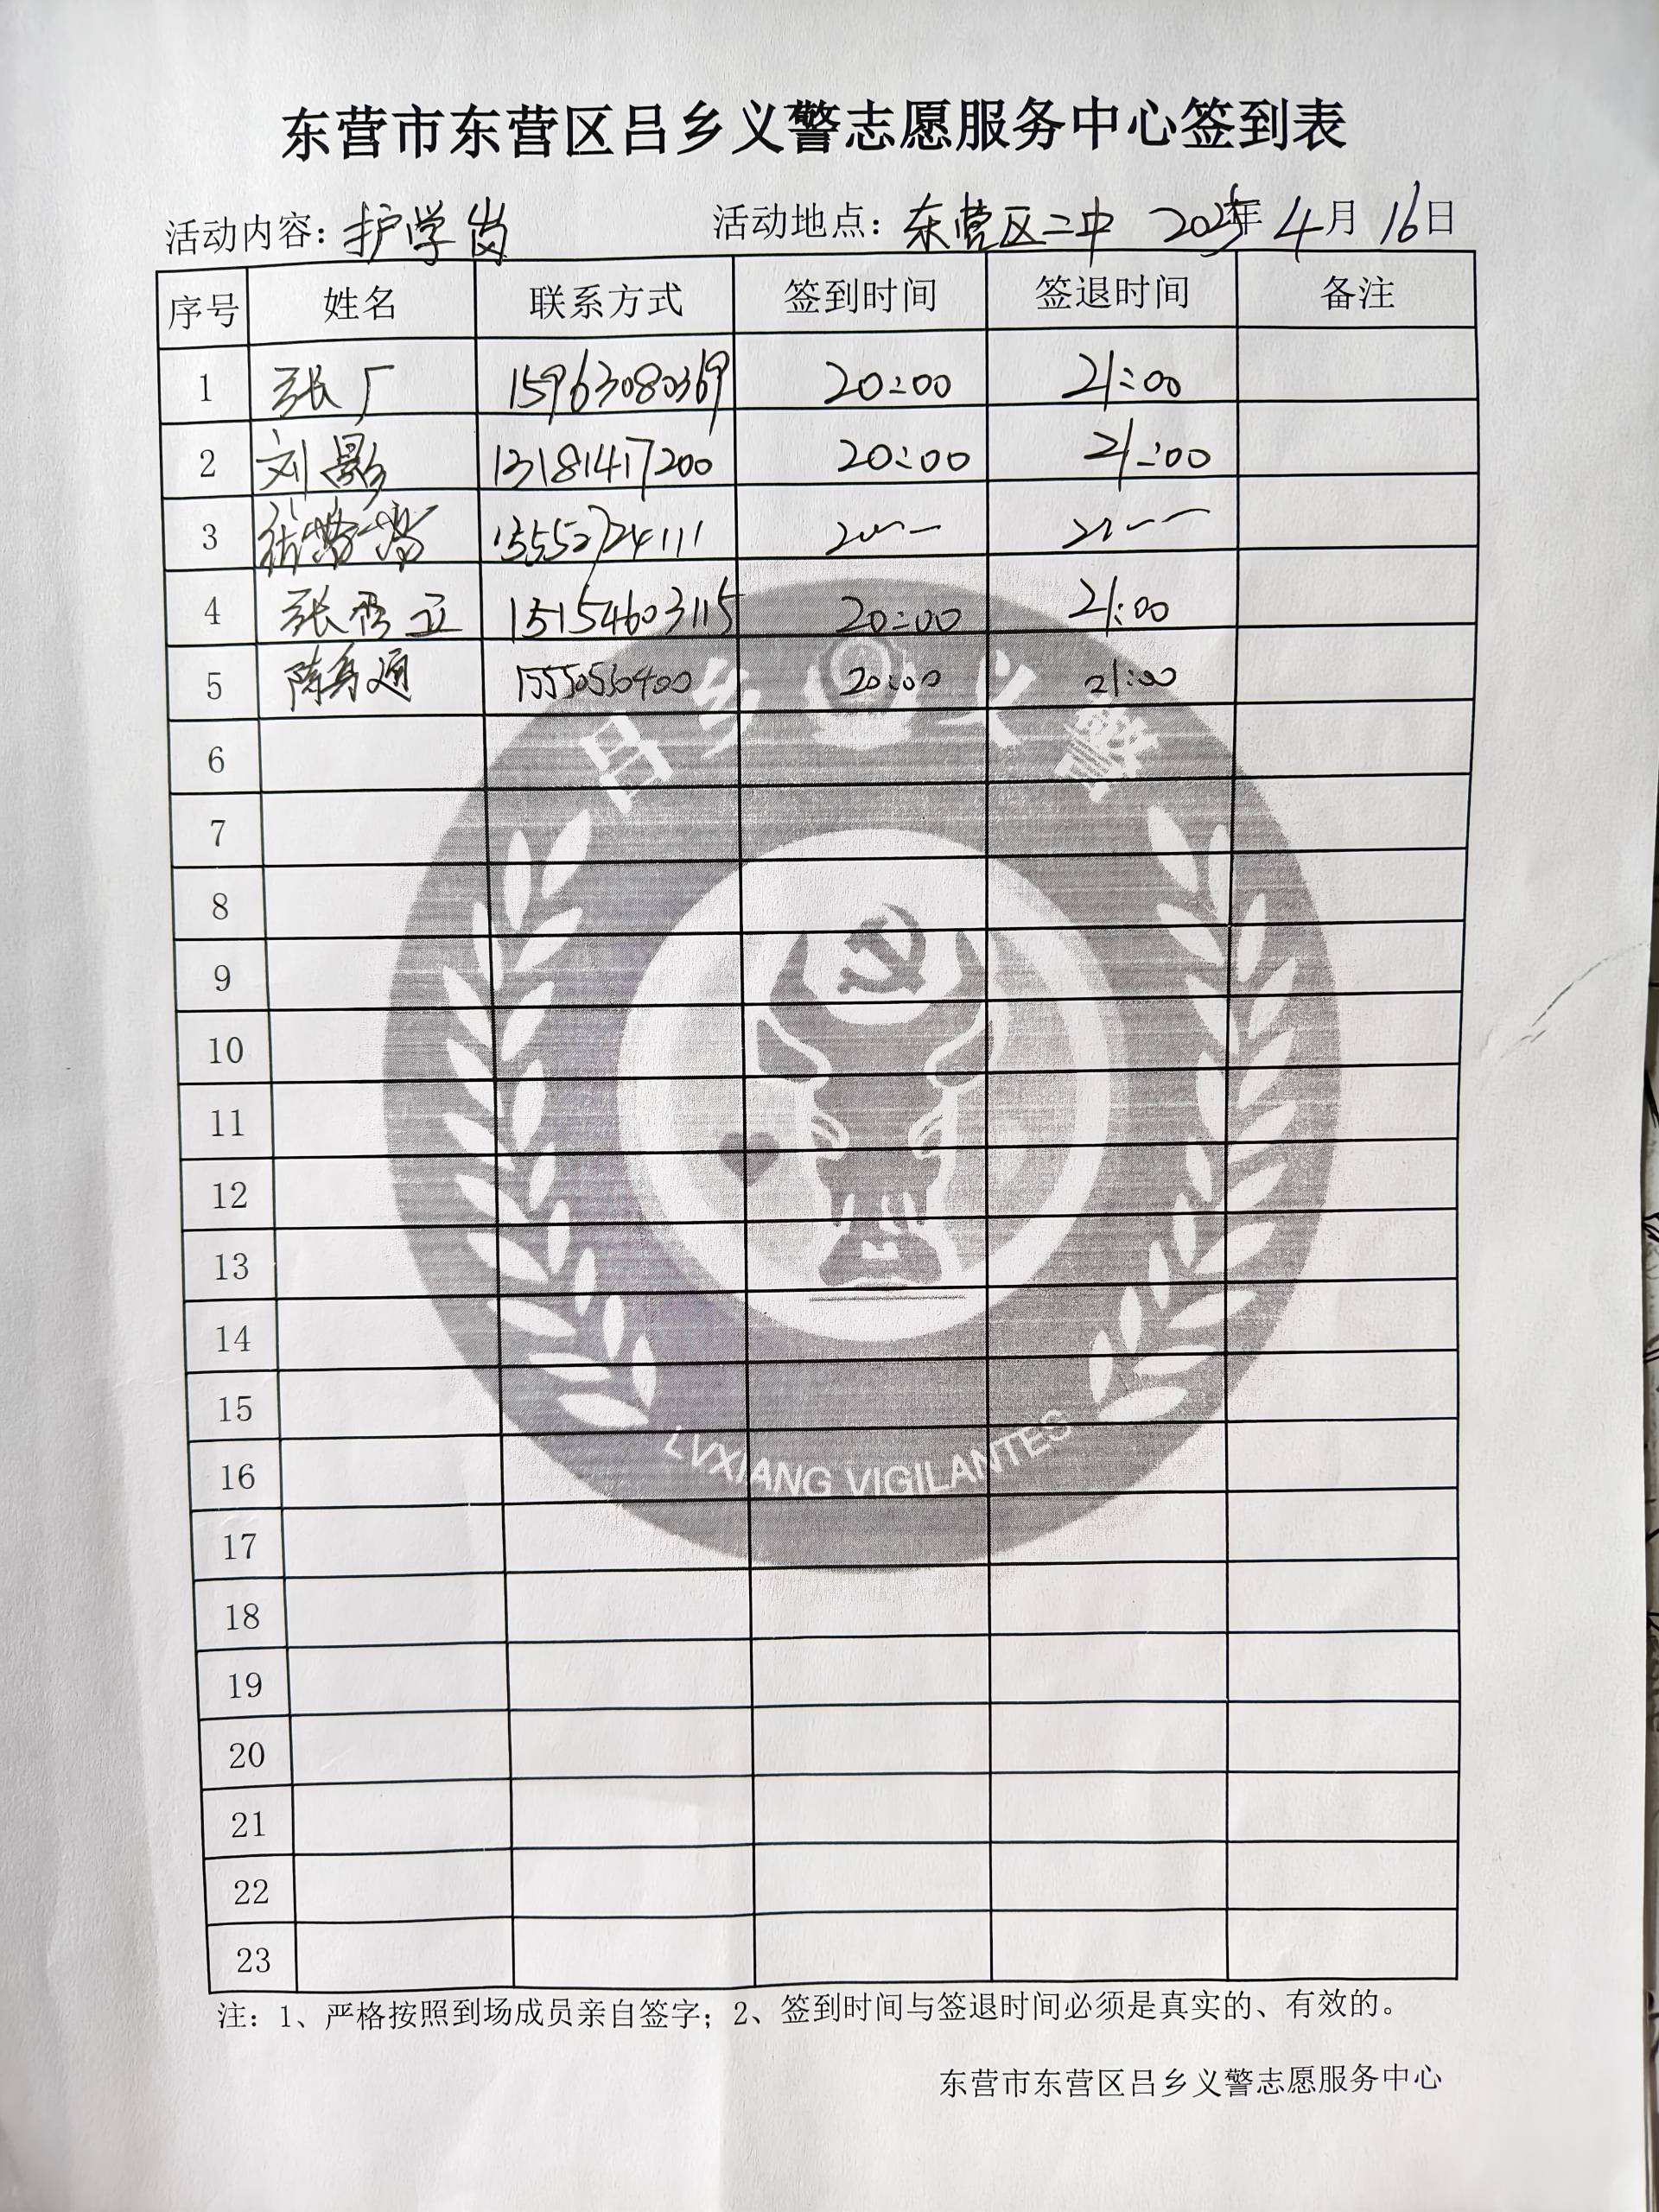 东营市东营区吕乡义警志愿服务中心签到表
活动内容：护学岗 活动地点：东营区二中 2025年 4月 16日
序号 姓名 联系方式 签到时间 签退时间 备注
1 张厂 15963080369 20:00 21:00
2 刘影 13181417200 20:00 21:00
3
4 张秀立 15154603115 20:00 21:00
5 陈寿通 15550556400 20:00 21:00
6
7
8
9
10
11
12
13
14
15
16
17
18
19
20
21
22
23
吕乡义警
LVXIANG VIGILANTES
注：1、严格按照到场成员亲自签字；2、签到时间与签退时间必须是真实的、有效的。
东营市东营区吕乡义警志愿服务中心